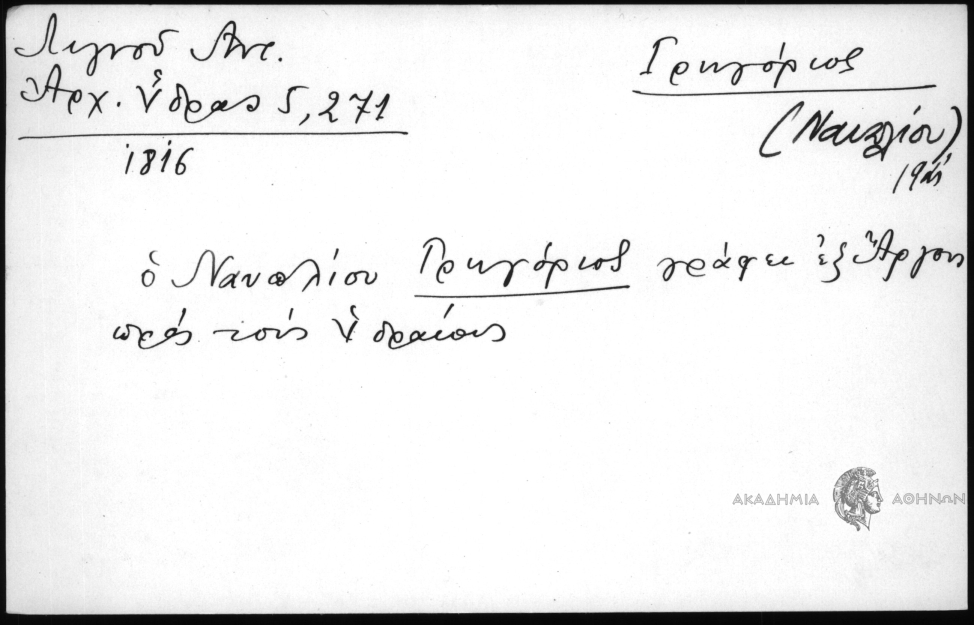 Λιγνοῦ Αντ.
Ἀρχ. Ὕδρας 5, 271
1816
Γρηγόριος
(Ναυπλίου)
ὁ Ναυπλίου Γρηγόριος γράφει ἐξ Ἄργους
πρός τούς Ὑδραίους
ΑΚΑΔΗΜΙΑ ΑΘΗΝΩΝ